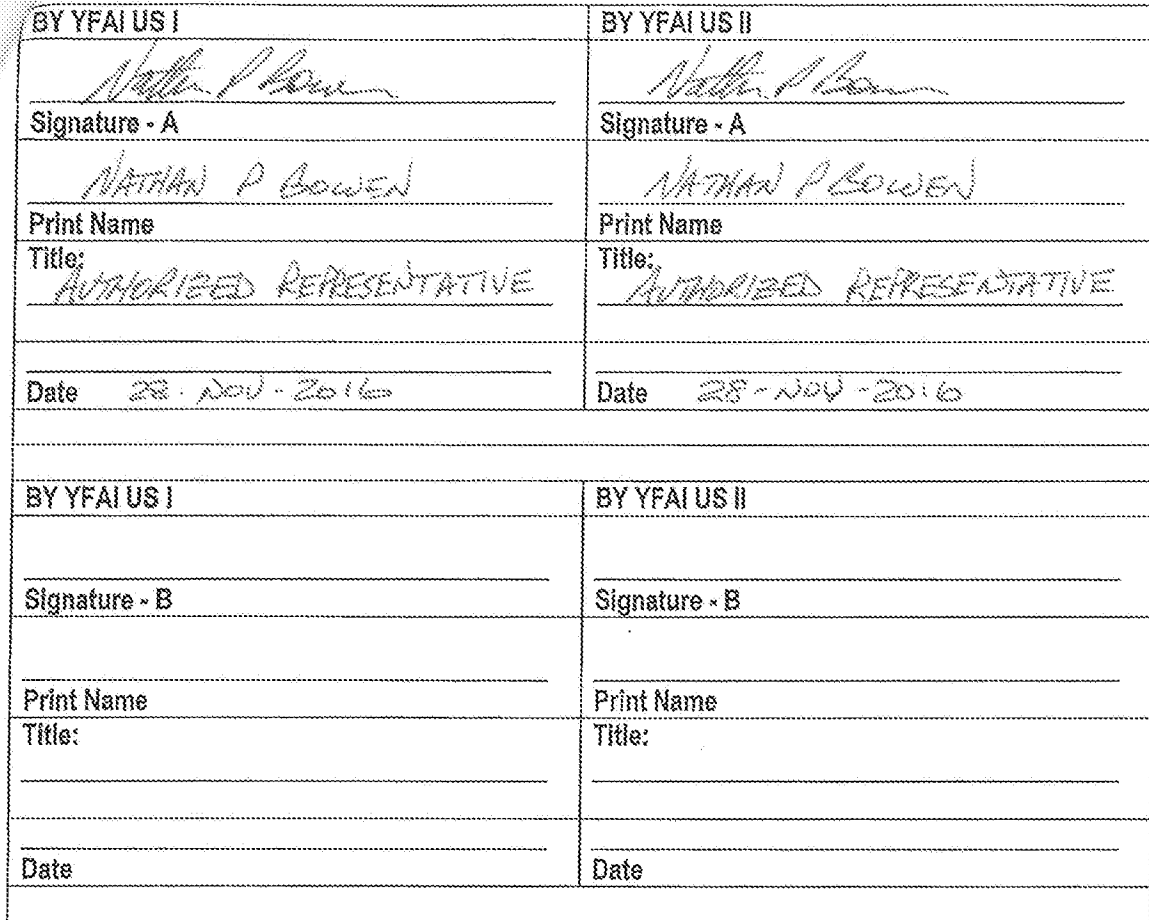 BY YFAI US I BY YFAI US II
Nathan P Bowen Nathan P Bowen
Signature - A Signature - A
NATHAN P BOWEN NATHAN P BOWEN
Print Name Print Name
Title: Title:
AUTHORIZED REPRESENTATIVE AUTHORIZED REPRESENTATIVE
Date 28-NOV-2016 Date 28-NOV-2016
BY YFAI US I BY YFAI US II
Signature - B Signature - B
Print Name Print Name
Title: Title:
Date Date